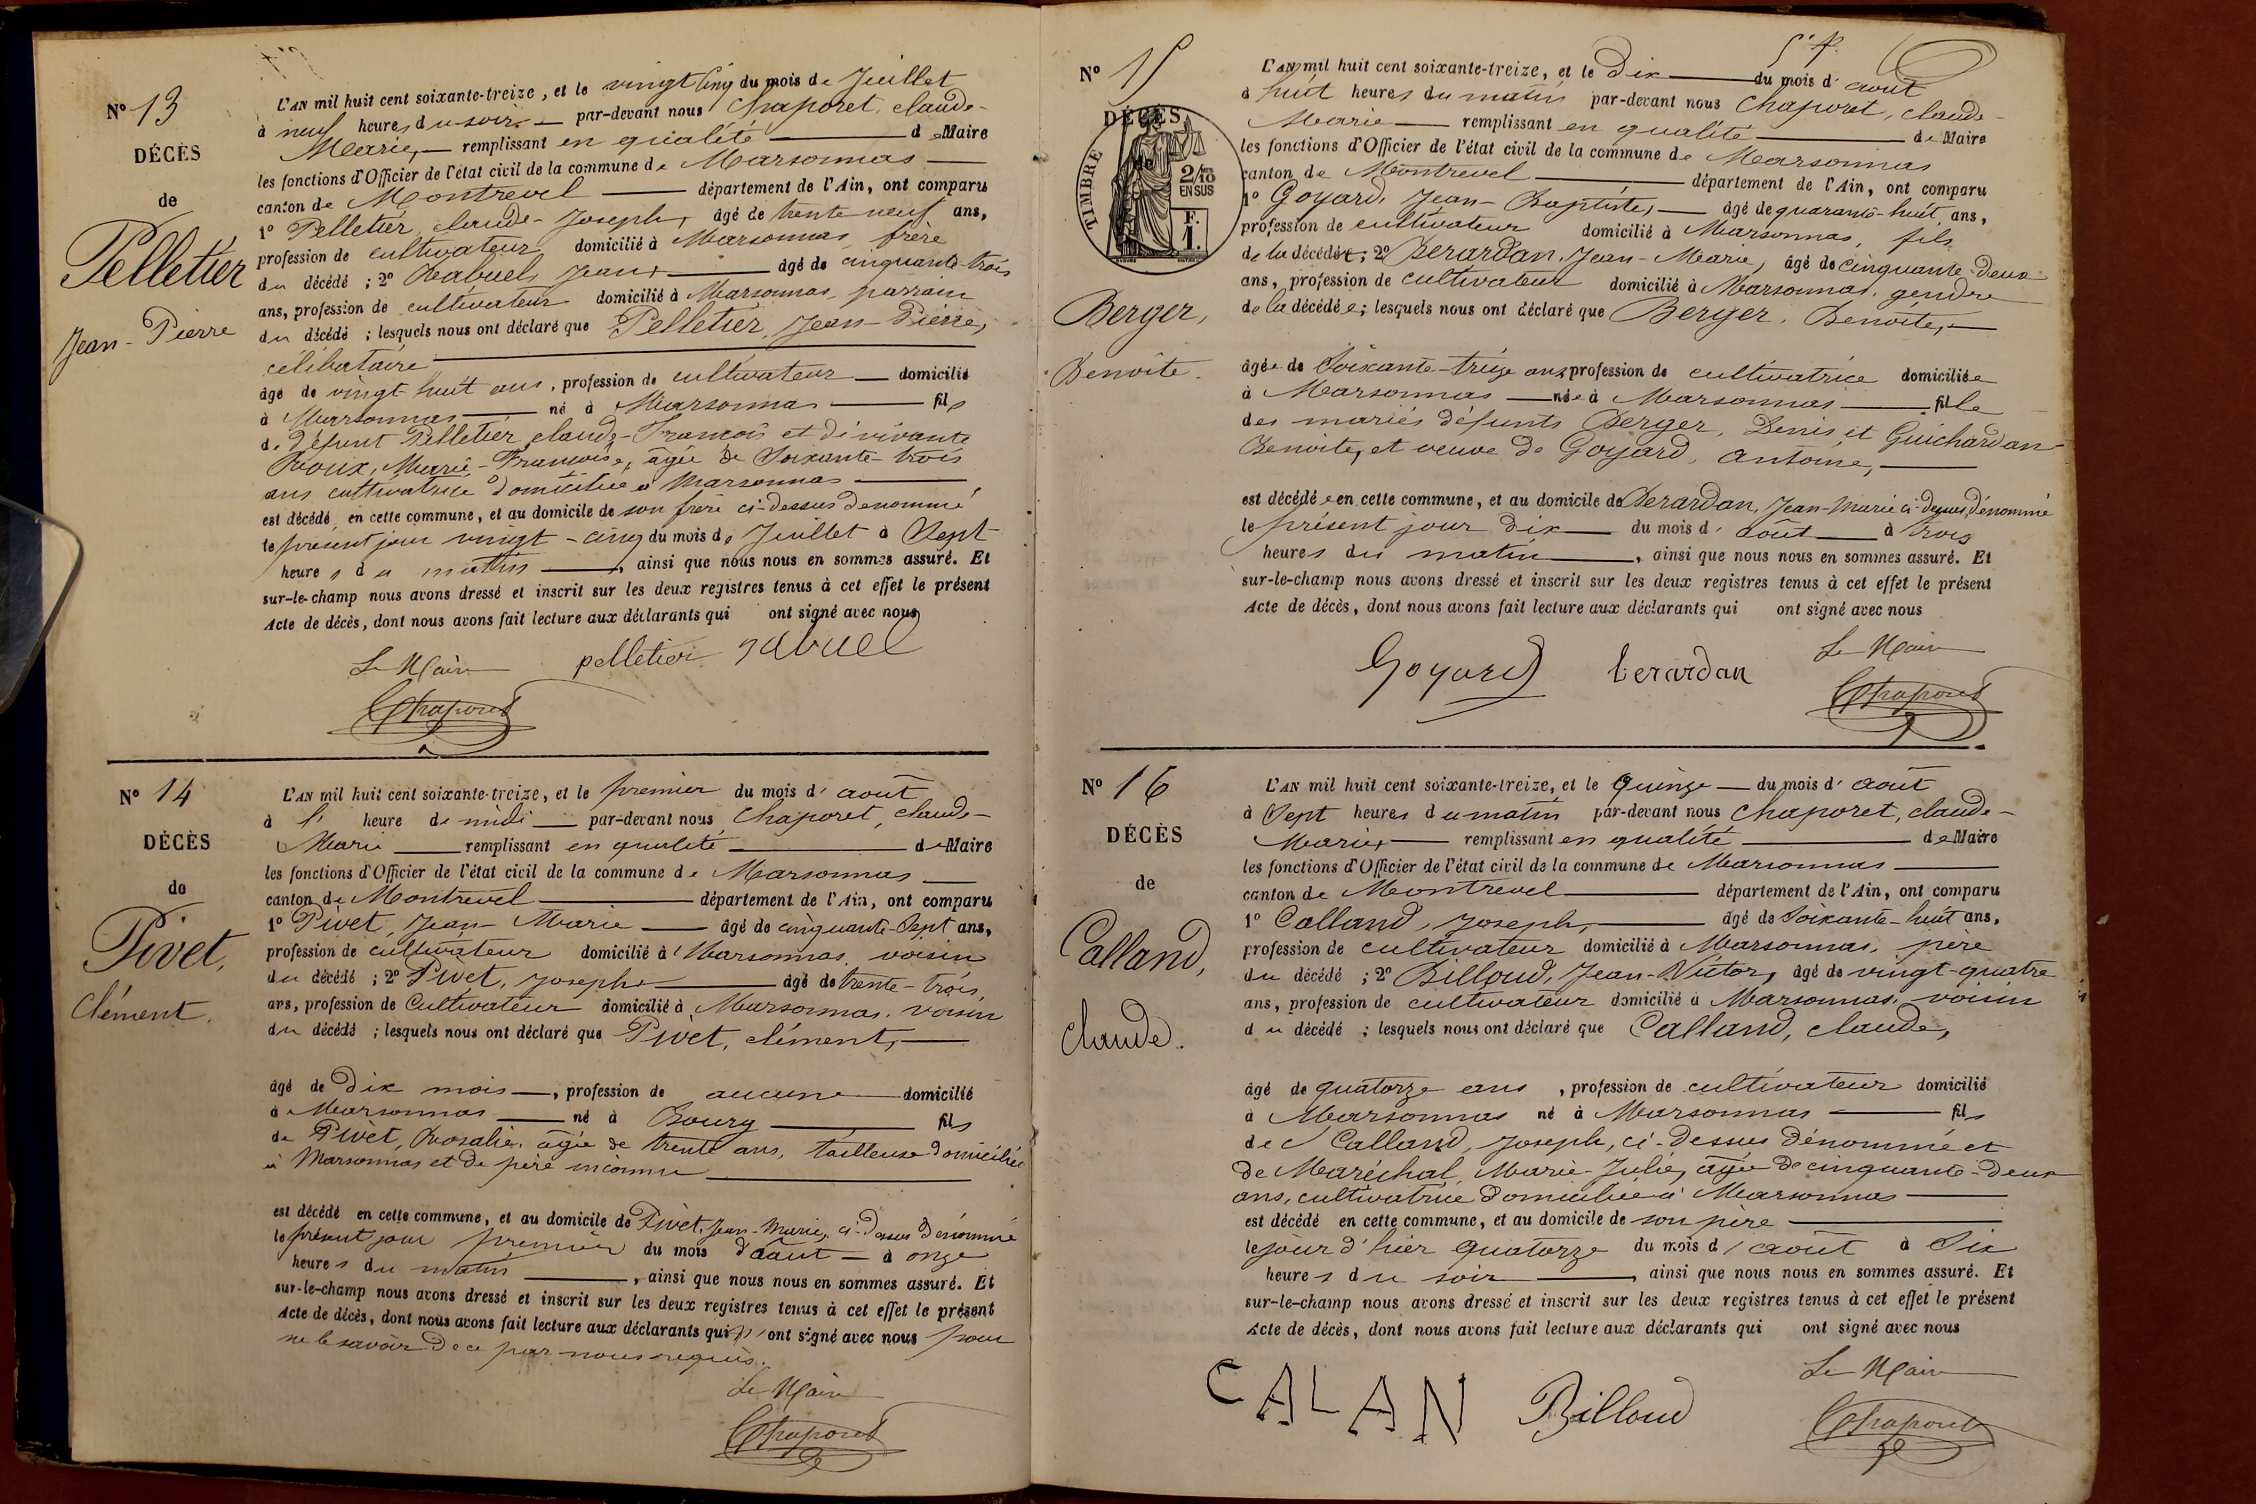 N° 13
DÉCÈS
de
Pelletier
Jean-Pierre
L'AN mil huit cent soixante-treize, et le vingt cinq du mois de Juillet
à neuf heures du soir — par-devant nous Chaporet, claude-
Marie, — remplissant en qualité — de Maire
les fonctions d'Officier de l'état civil de la commune de Marsonnas —
canton de Montrevel — département de l'Ain, ont comparu
1° Pelletier, claude-Joseph, âgé de trente neuf ans,
profession de cultivateur domicilié à Marsonnas, frère
du décédé ; 2° Rabuel, Jean, — âgé de cinquante-trois
ans, profession de cultivateur domicilié à Marsonnas, parrain
du décédé ; lesquels nous ont déclaré que Pelletier, Jean-Pierre,
célibataire —
âgé de vingt-huit ans, profession de cultivateur — domicilié
à Marsonnas — né à Marsonnas — fils
de défunt Pelletier, claude-François et de vivante
Roux, Marie-Françoise, âgée de Soixante-trois
ans cultivatrice domiciliée à Marsonnas —
est décédé en cette commune, et au domicile de son frère ci-dessus dénommé,
le présent jour vingt-cinq du mois de Juillet à Sept
heures du matin —, ainsi que nous nous en sommes assuré. Et
sur-le-champ nous avons dressé et inscrit sur les deux registres tenus à cet effet le présent
Acte de décès, dont nous avons fait lecture aux déclarants qui ont signé avec nous
Le Maire pelletier rabuel
Chaporet
N° 14
DÉCÈS
de
Pivet,
Clément.
L'AN mil huit cent soixante-treize, et le premier du mois d'août
à l'heure de midi — par-devant nous Chaporet, claude-
Marie — remplissant en qualité — de Maire
les fonctions d'Officier de l'état civil de la commune de Marsonnas —
canton de Montrevel — département de l'Ain, ont comparu
1° Pivet, Jean-Marie — âgé de cinquante-Sept ans,
profession de cultivateur domicilié à Marsonnas, voisin
du décédé ; 2° Pivet, Joseph — âgé de trente-trois,
ans, profession de Cultivateur domicilié à Marsonnas, voisin
du décédé ; lesquels nous ont déclaré que Pivet, clément, —
âgé de dix mois —, profession de aucune — domicilié
à Marsonnas — né à Bourg — fils
de Pivet, Rosalie, âgée de trente ans, tailleuse domiciliée
à Marsonnas et de père inconnu —
est décédé en cette commune, et au domicile de Pivet, Jean-Marie, ci-dessus dénommé
le présent jour premier du mois d'août — à onze
heures du matin —, ainsi que nous nous en sommes assuré. Et
sur-le-champ nous avons dressé et inscrit sur les deux registres tenus à cet effet le présent
Acte de décès, dont nous avons fait lecture aux déclarants qui n'ont signé avec nous pour
ne le savoir de ce par nous requis.
Le Maire
Chaporet
N° 15
DÉCÈS
de
TIMBRE
2/10
EN SUS
F.
1.
Berger,
Benoîte.
L'AN mil huit cent soixante-treize, et le Dix — du mois d'août
à huit heures du matin par-devant nous Chaporet, claude-
Marie — remplissant en qualité — de Maire
les fonctions d'Officier de l'état civil de la commune de Marsonnas
canton de Montrevel — département de l'Ain, ont comparu
1° Goyard, Jean-Baptiste, — âgé de quarante-huit ans,
profession de cultivateur domicilié à Marsonnas, fils
de la décédée ; 2° Berardan, Jean-Marie, âgé de cinquante-deux
ans, profession de cultivateur domicilié à Marsonnas, gendre
de la décédée ; lesquels nous ont déclaré que Berger, Benoîte, —
âgée de Soixante-treize ans, profession de cultivatrice domiciliée
à Marsonnas — née à Marsonnas — fille
des mariés défunts Berger, Denis et Guichardan
Benoite, et veuve de Goyard, antoine, —
est décédée en cette commune, et au domicile de Berardan, Jean-Marie ci-dessus dénommé
le présent jour dix — du mois d'août — à trois
heures du matin —, ainsi que nous nous en sommes assuré. Et
sur-le-champ nous avons dressé et inscrit sur les deux registres tenus à cet effet le présent
Acte de décès, dont nous avons fait lecture aux déclarants qui ont signé avec nous
Goyard berardan Le Maire
Chaporet
N° 16
DÉCÈS
de
Calland,
Claude.
L'AN mil huit cent soixante-treize, et le Quinze — du mois d'août
à Sept heures du matin par-devant nous Chaporet, claude-
Marie, — remplissant en qualité — de Maire
les fonctions d'Officier de l'état civil de la commune de Marsonnas —
canton de Montrevel — département de l'Ain, ont comparu
1° Calland, Joseph, — âgé de Soixante-huit ans,
profession de cultivateur domicilié à Marsonnas, père
du décédé ; 2° Billoud, Jean-Victor, âgé de vingt-quatre
ans, profession de cultivateur domicilié à Marsonnas, voisin
du décédé ; lesquels nous ont déclaré que Calland, claude,
âgé de quatorze ans, profession de cultivateur domicilié
à Marsonnas né à Marsonnas — fils
de Calland, Joseph, ci-dessus dénommé et
de Maréchal, Marie-Julie, âgée de cinquante-deux
ans, cultivatrice domiciliée à Marsonnas —
est décédé en cette commune, et au domicile de son père —
le jour d'hier quatorze du mois d'août à Six
heures du soir —, ainsi que nous nous en sommes assuré. Et
sur-le-champ nous avons dressé et inscrit sur les deux registres tenus à cet effet le présent
Acte de décès, dont nous avons fait lecture aux déclarants qui ont signé avec nous
CALAN Billoud Le Maire
Chaporet